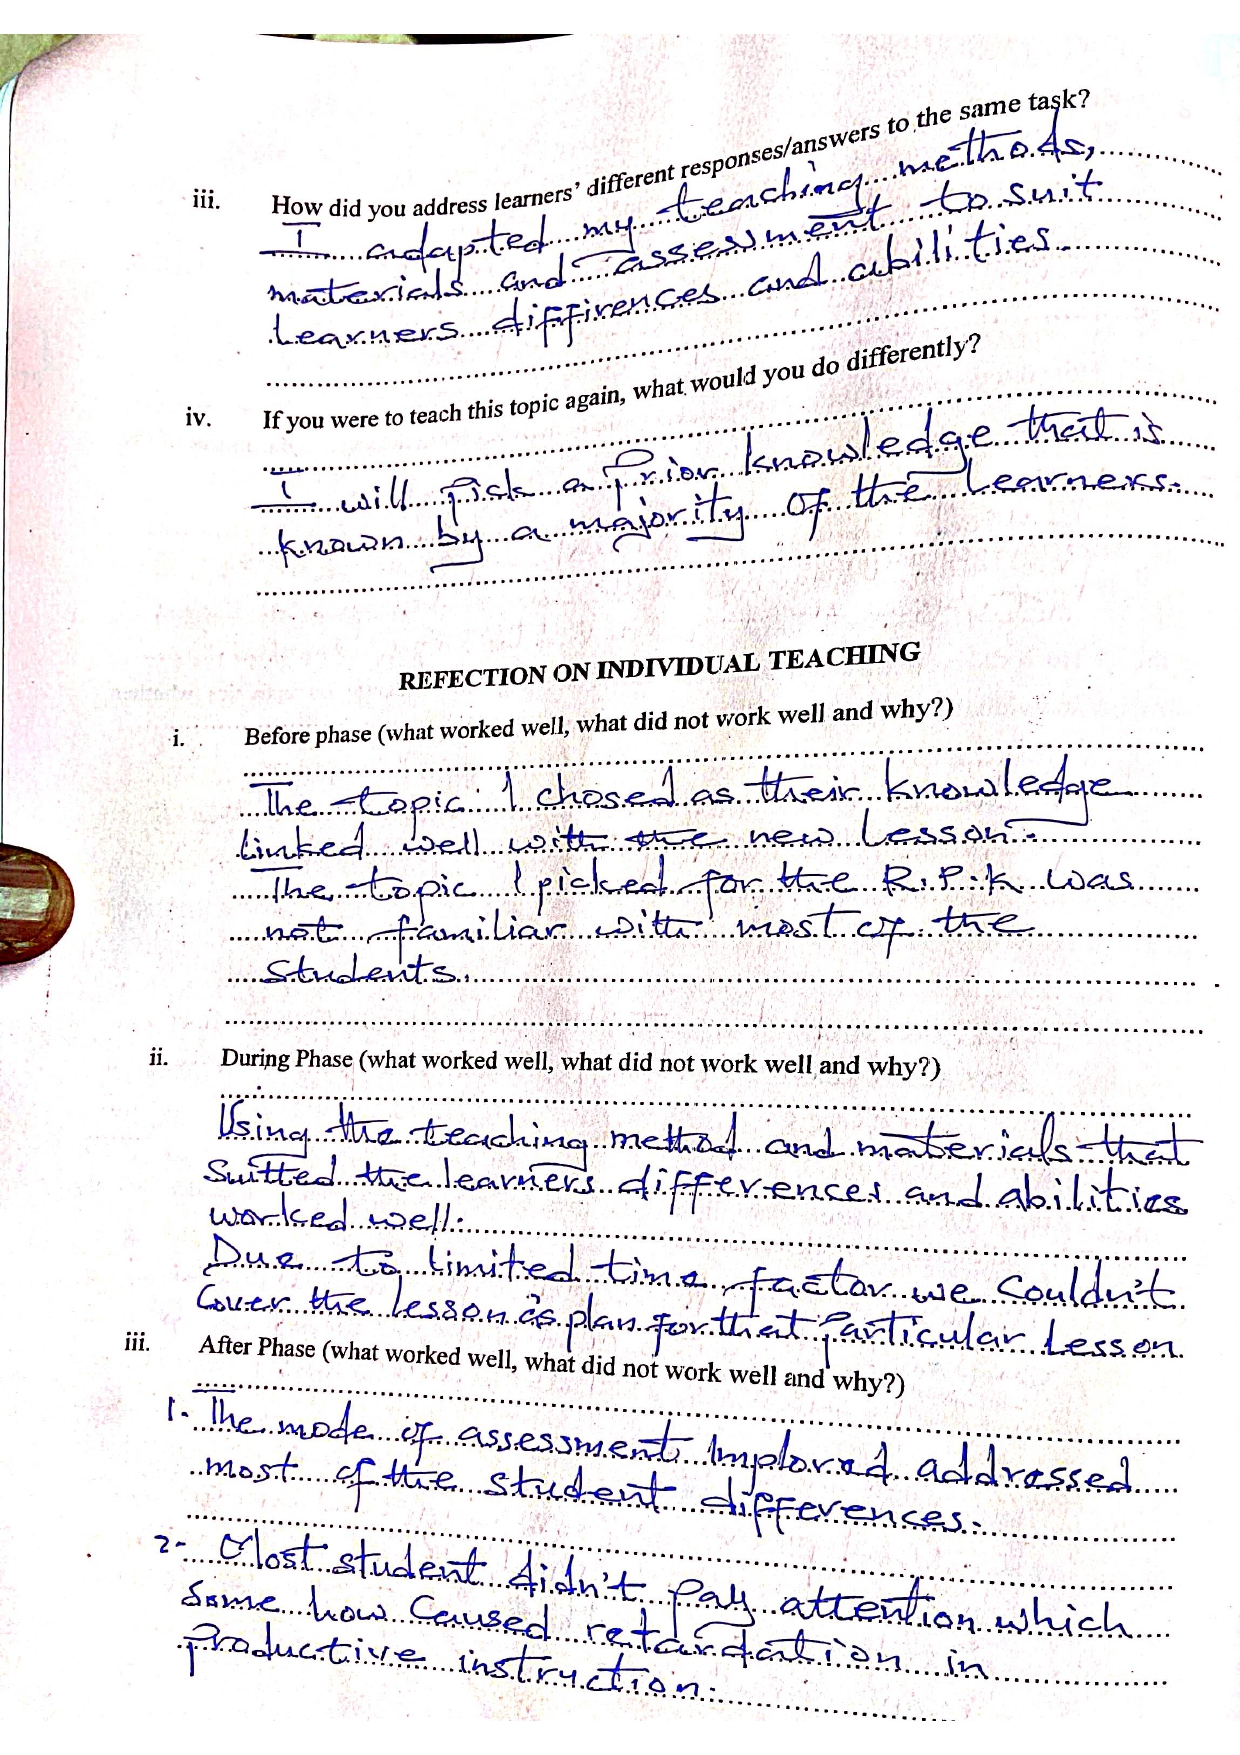 iii. How did you address learners' different responses/answers to the same task?
I adapted my teaching methods,
materials and assessment to suit
learners diffirences and abilities.
iv. If you were to teach this topic again, what would you do differently?
I will pick a prior knowledge that is
known by a majority of the learners.
REFECTION ON INDIVIDUAL TEACHING
i. Before phase (what worked well, what did not work well and why?)
The topic I chosed as their knowledge
linked well with the new lesson.
The topic I picked for the R.P.K was
not familiar with most of the
students.
ii. During Phase (what worked well, what did not work well and why?)
Using the teaching method and materials that
suitted the learners differences and abilities
worked well.
Due to limited time factor we couldn't
cover the lesson plan for that particular lesson.
iii. After Phase (what worked well, what did not work well and why?)
1. The mode of assessment implored addressed
most of the student differences.
2. Most student didn't pay attention which
some how caused retardation in
productive instruction.